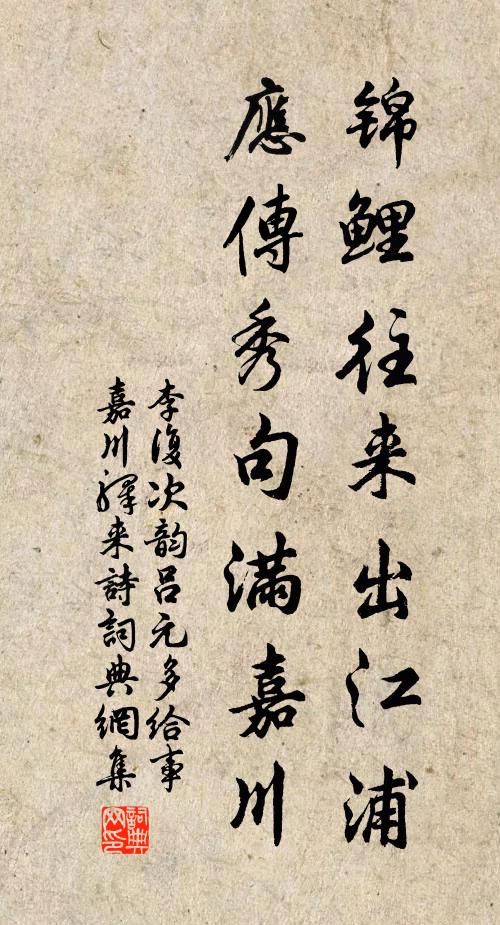 锦鲤往来出江浦
應傳秀句满嘉川
李復次韵吕元多给事
嘉川驛来詩詞典網集
詞典网印